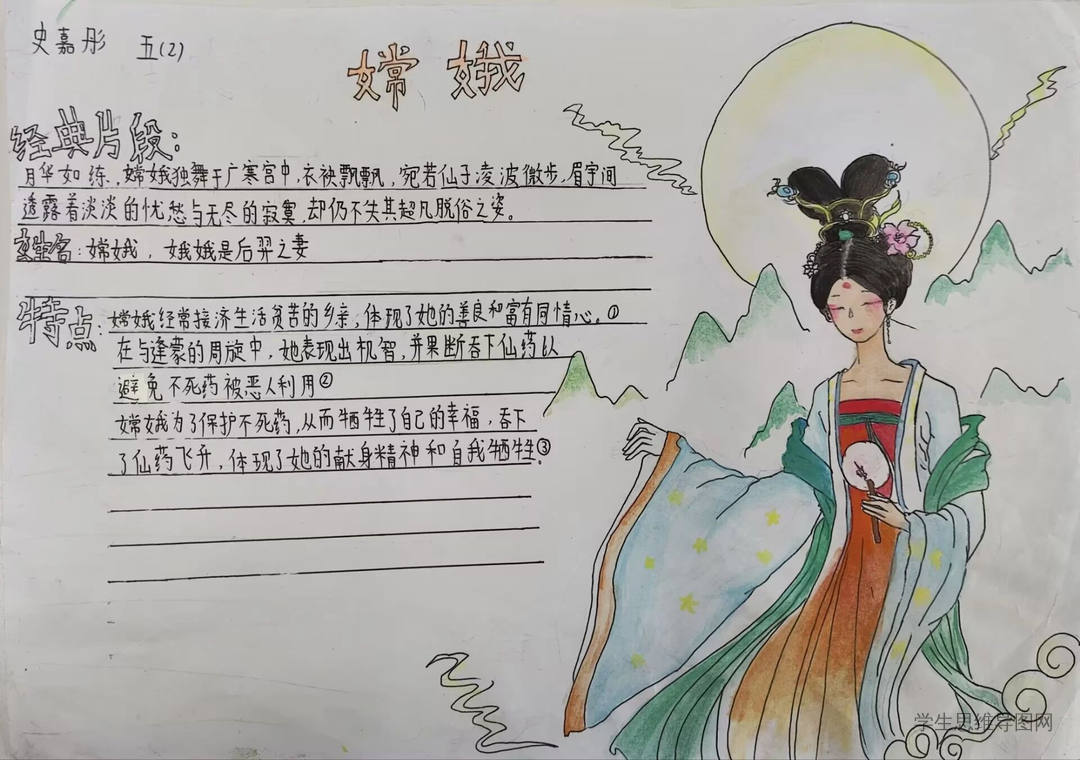 史嘉彤 五(2)
嫦娥
经典片段:
月华如练,嫦娥独舞于广寒宫中,衣袂飘飘,宛若仙子凌波微步,眉宇间
透露着淡淡的忧愁与无尽的寂寞,却仍不失其超凡脱俗之姿。
姓名:嫦娥,娥娥是后羿之妻
特点:
嫦娥经常接济生活贫苦的乡亲,体现了她的善良和富有同情心。①
在与逢蒙的周旋中,她表现出机智,并果断吞下仙药以
避免不死药被恶人利用②
嫦娥为了保护不死药,从而牺牲了自己的幸福,吞下
了仙药飞升,体现了她的献身精神和自我牺牲。③
学生思维导图网